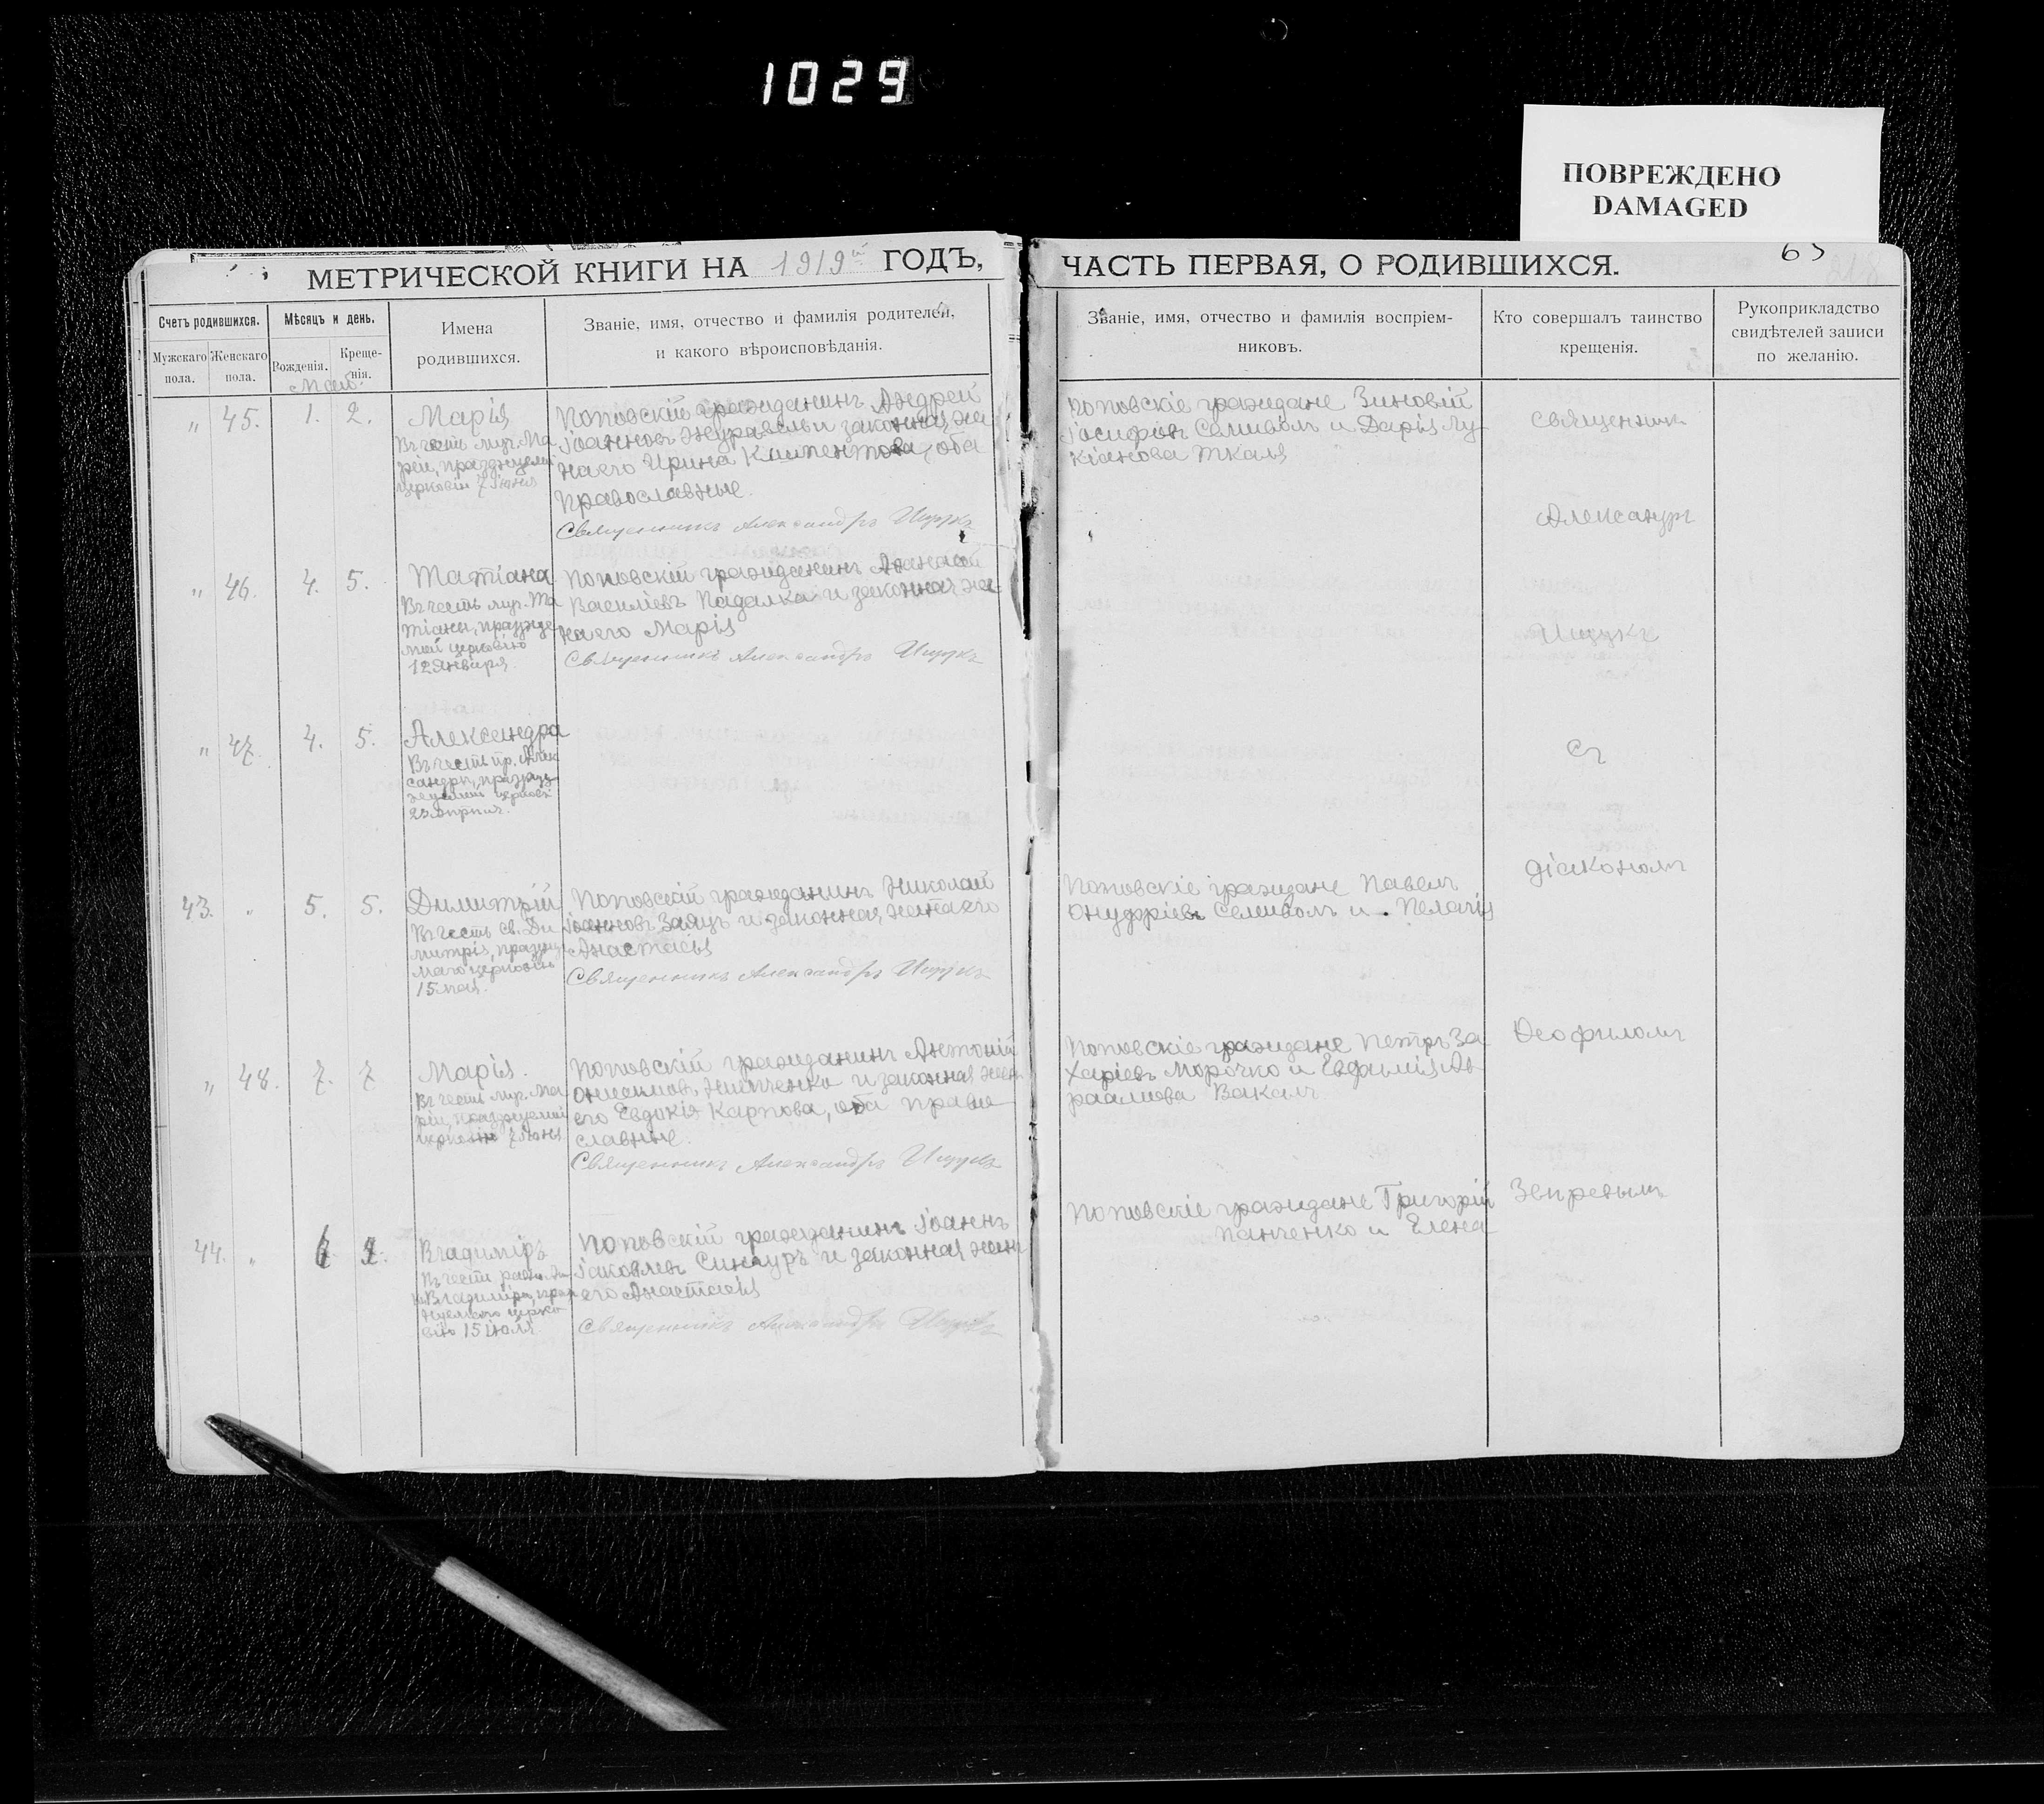 1029
ПОВРЕЖДЕНО
DAMAGED
63
МЕТРИЧЕСКОЙ КНИГИ НА 1919й ГОДЪ,
ЧАСТЬ ПЕРВАЯ, О РОДИВШИХСЯ.
Счетъ родившихся.
Мужскаго пола.
Женскаго пола.
Мѣсяцъ и день.
Рожденія.
Креще-
нія.
Имена
родившихся.
Званіе, имя, отчество и фамилія родителей,
и какого вѣроисповѣданія.
Званіе, имя, отчество и фамилія воспріем-
никовъ.
Кто совершалъ таинство
крещенія.
Рукоприкладство
свидѣтелей записи
по желанію.
Май.
„ 45. 1. 2.
Марія
Въ честь мир. Ма
ріи, празднуемой
церковію 7 іюня
Поповскій гражданинъ Андрей
Іоанновъ Журавель и законная же
на его Ирина Климентова, оба
православные.
Священникъ Александръ Ищукъ
Поповскіе граждане Зиновій
Іосифовъ Семиволъ и Дарія Лу
кіанова Ткаля
„ 46. 4. 5.
Татіана
Въ честь муч. Та
тіаны, праздуе
мой церковію
12 января.
Поповскій гражданинъ Аѳанасій
Василіевъ Падалка и законная же-
на его Марія
Священникъ Александръ Ищукъ
„ 47. 4. 5.
Александра
Въ честь пр. Алек
сандры, празд
нуемой церков
23 апрѣля.
43. „ 5. 5.
Димитрій
Въ честь св. Ди
митрія, праздну
маго церковію
15 мая.
Поповскій гражданинъ Николай
Іоанновъ Заяцъ и законная жена его
Анастасія
Священникъ Александръ Ищукъ
Поповскіе граждане Павелъ
Онуфріевъ Семиволъ и Пелагія
„ 48. 7. 7
Марія.
Въ честь мир. Ма
ріи, празднуемой
церковію 7 іюня
Поповскій гражданинъ Антоній
Онисимовъ Нипченко и законная жена
его Евдокія Карпова, оба право
славные.
Священникъ Александръ Ищукъ
Поповскіе граждане Петръ За
харіевъ Морочко и Евфимія Ав
раамова Вакалъ
44. „
Владиміръ
Въ честь равноап
кн Владиміра, празд
нуемаго церко
вію 15 іюля.
Поповскій гражданинъ Іоаннъ
Іаковлевъ и законная жена
его Анастасія
Священникъ Александръ Ищукъ
Поповскіе граждане Григорій
Панченко и Елена
Священникъ
Александръ
Ищукъ
Съ
діакономъ
Ѳеофиломъ
Звиревымъ